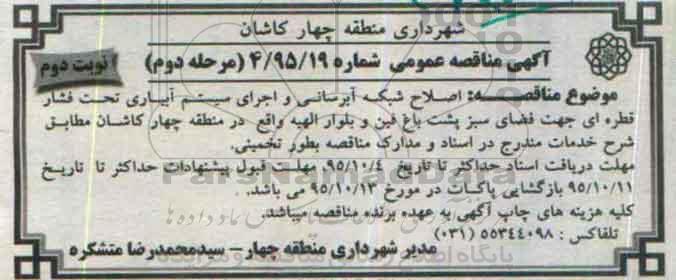 شهرداری منطقه چهار کاشان
آگهی مناقصه عمومی شماره ۴/۹۵/۱۹ (مرحله دوم)
نوبت دوم
موضوع مناقصه: اصلاح شبکه آبرسانی و اجرای سیستم آبیاری تحت فشار
قطره ای جهت فضای سبز پشت باغ فین و بلوار الهیه واقع در منطقه چهار کاشان مطابق
شرح خدمات مندرج در اسناد و مدارک مناقصه بطور تخمینی.
مهلت دریافت اسناد حداکثر تا تاریخ ۹۵/۱۰/٤، مهلت قبول پیشنهادات حداکثر تا تاریخ
۹۵/۱۰/۱۱ بازگشایی پاکات در مورخ ۹۵/۱۰/۱۳ می باشد.
کلیه هزینه های چاپ آگهی به عهده برنده مناقصه میباشد.
تلفاکس : ۵۵۳٤٤۰۹۸ (۰۳۱)
مدیر شهرداری منطقه چهار – سیدمحمدرضا متشکره
ParsNamadData